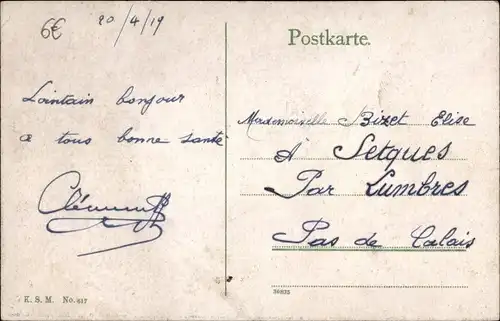 6€
20/4/19
Postkarte.
Lointain bonjour
a tous bonne santé
Mademoiselle Bizet Elise
A Setques
Par Lumbres
Pas de Calais
K. S. M. No. 817
30835